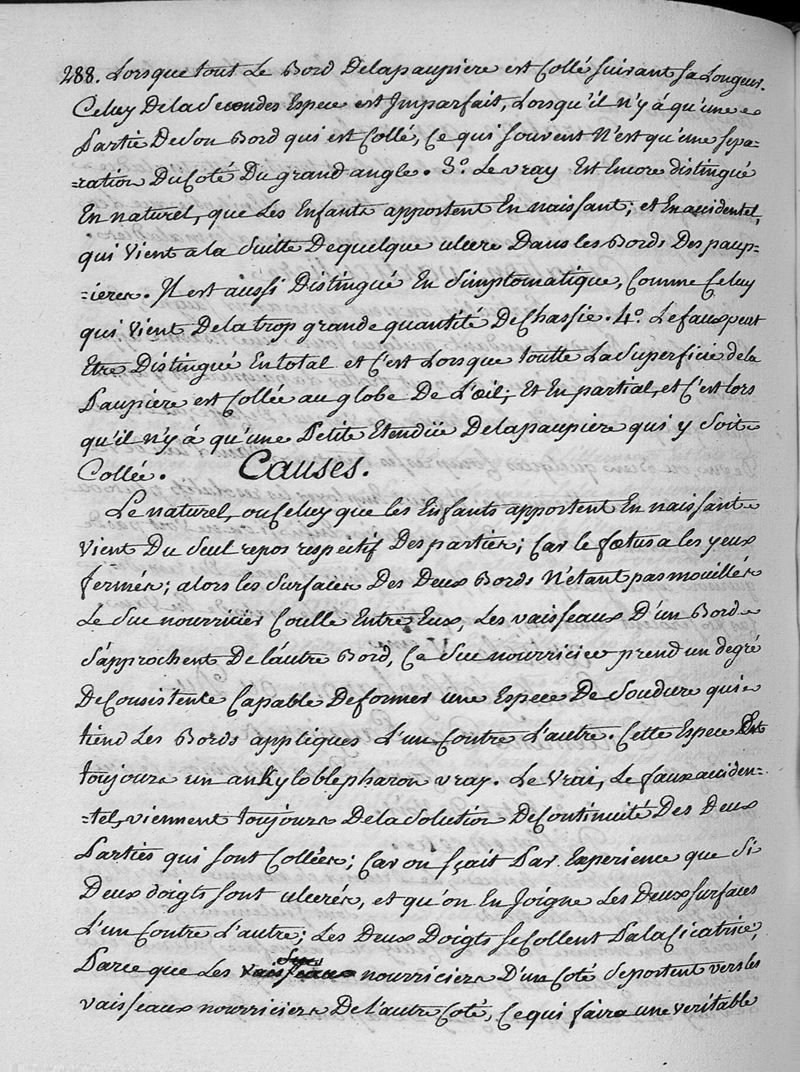 288. Lorsque tout Le Bord Delapaupiere est Collé suivant sa Longeur.
Celuy DelaSecondes Espece est Imparfait, Lorsqu'il n'y à qu'une
Partie DeSon Bord qui est Collé, Ce qui souvent N'est qu'une sepa=
=ration DuCoté Du grand angle. 3.º Le vray Est Encore distingué
En naturel, que Les Enfants apportent En naissant; et En accidentel,
qui Vient a la Suitte Dequelque ulcere Dans les Bords Des paup=
=ieres. Il est aussi Distingué En Simptomatique, Comme Celuy
qui Vient Dela trop grande quantité DeChassie. 4.º Le faux peut
Etre Distingué En total et C'est Lorsque toutte La Superficie dela
Paupiere est Collée au globe De L'œil; Et En partial, et C'est lors
qu'il n'y à qu'une Petite Etendüe Delapaupiere qui y Soit
Collée. Causes.
Le naturel, ou Celuy que les Enfants apportent En naissant
vient Du Seul repos respectif Des parties; Car le fœtus a les yeux
fermés; alors les Surfaces Des Deux Bords N'étant pas mouillés
Le Suc nourricier Coulle Entre Eux, Les vaisseaux D'un Bord
S'approchent De l'autre Bord, Ce Suc nourricier prend un degré
DeConsistente Capable Deformer une Espece De Soudure qui
tiend Les Bords appliques L'un Contre L'autre. Cette Espece Est
toujours un ankyloblepharon vray. Le Vrai, Le faux acciden=
=tel, viennent toujours Dela Solution DeContinuité Des Deux
Parties qui sont Collées; Car on sçait Par Experience que Si
Deux doigts sont ulcerés, et qu'on En Joigne Les Deux surfaces
L'un Contre L'autre; Les Deux Doigts se Collent Par la Cicatrice,
Parce que Les Sucs nourriciers D'un Coté Seportent vers les
vaisseaux nourriciers De L'autre Coté, Ce qui faira une veritable